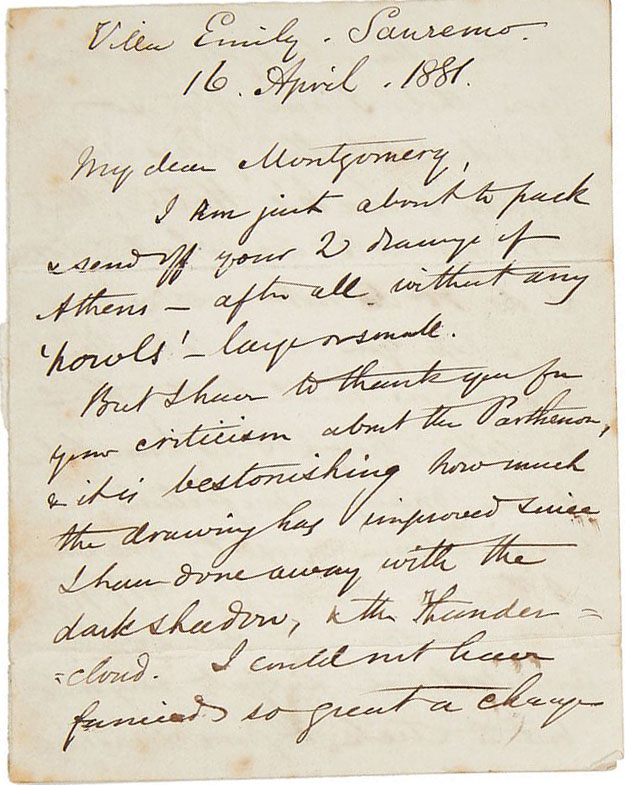 Villa Emily. Sanremo.
16. April. 1881.
My dear Montgomery,
I am just about to pack
& send off your 2 drawings of
Athens — after all without any
'howls' — large or small.
But I have to thank you for
your criticism about the Parthenon,
& it is bestonishing how much
the drawing has improved since
I have done away with the
dark shadow, & the Thunder=
=cloud. I could not have
fancied so great a change